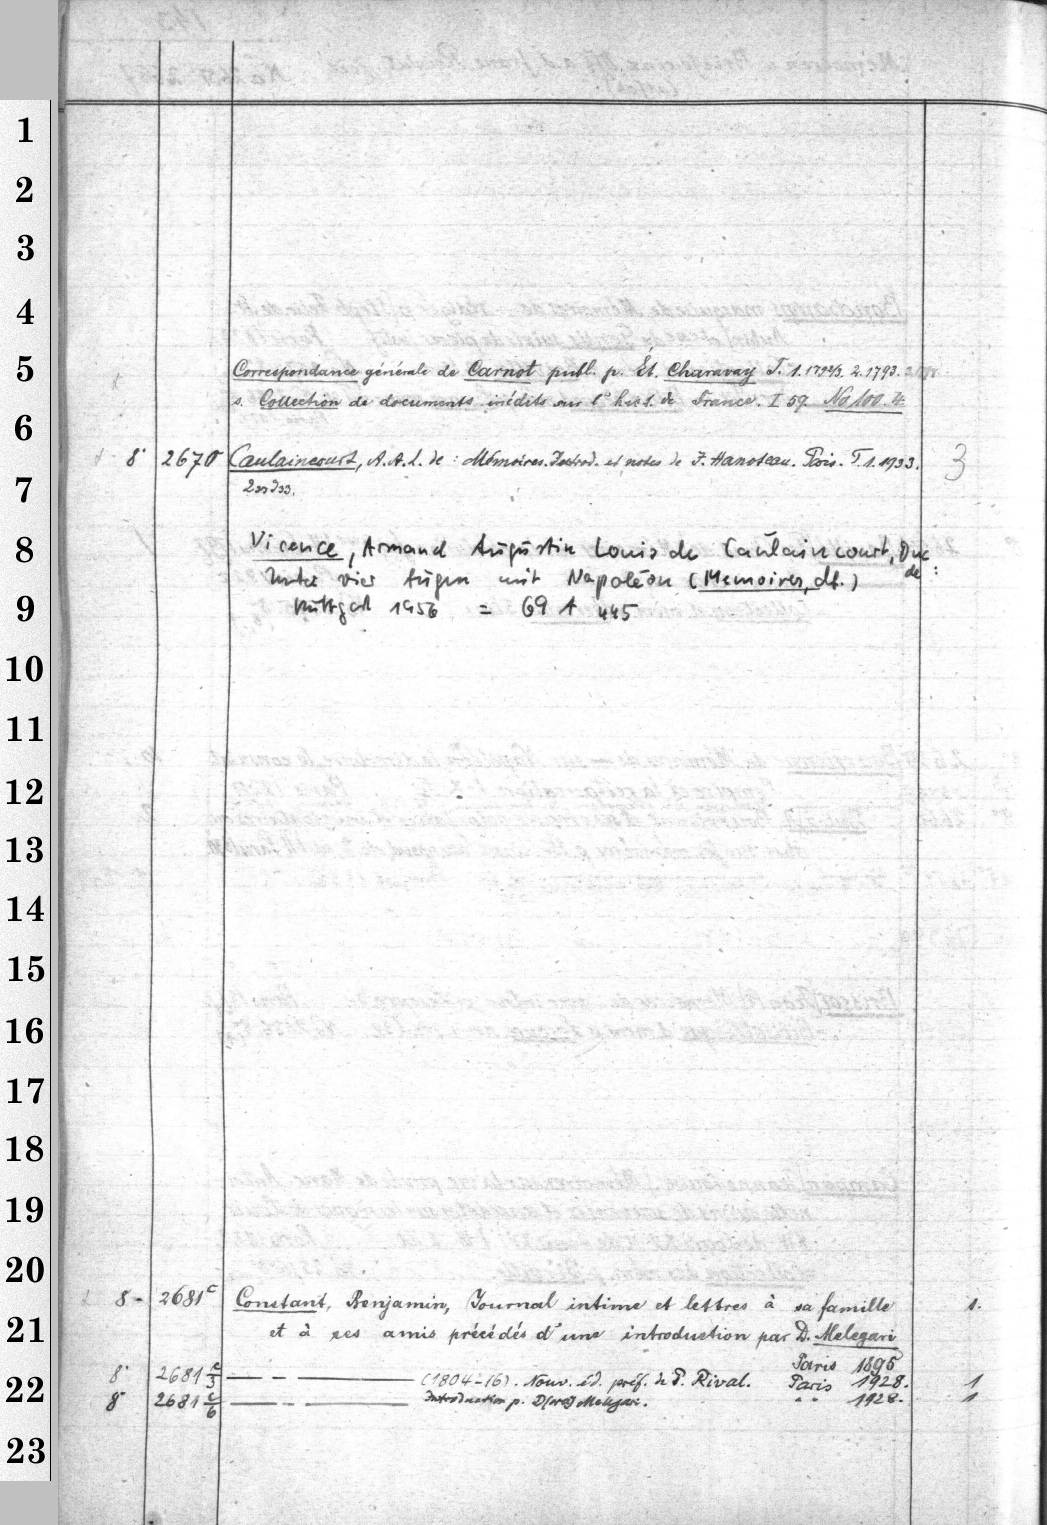 1
2
3
4
5
Correspondance générale de Carnot publ. p. Ét. Charavay T. 1. 1792/3. 2. 1793.
s. Collection de documents inédits sur l'hist. de France. I 59. No 100. 4.
6
8° 2670 Caulaincourt, A. A. L. de: Mémoires. Introd. et notes de J. Hanoteau. Paris. T. 1. 1933. 3
2 33.
7
8
Vicence, Armand Augustin Louis de Caulaincourt, Duc de:
Unter vier Augen mit Napoléon (Memoires, dt.)
9
Stuttgart 1956 = 69 A 445
10
11
12
13
14
15
16
17
18
19
20
8° 2681c Constant, Benjamin, Journal intime et lettres à sa famille 1.
21
et à ses amis précédés d'une introduction par D. Melegari
Paris 1895
22
8° 2681 c/3 — - — (1804-16). Nouv. éd. préf. de P. Rival. Paris 1928. 1
8° 2681 c/6 — - — Introduction p. D[ora] Melegari. " " 1928. 1
23